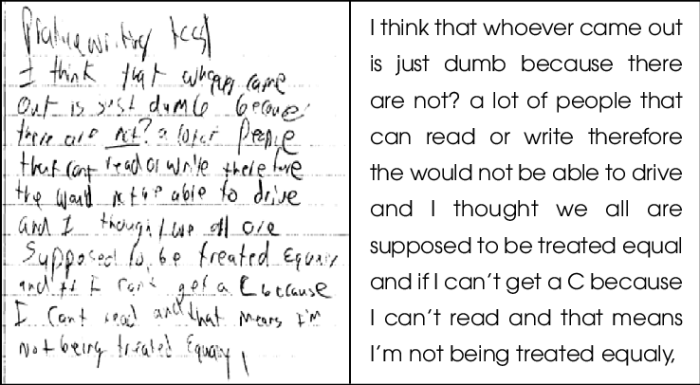 writing test
I think that came
out is just dumb because
there are not? a lot of people
that cant read or write therefore
the would not be able to drive
and I thought we all are
Supposed to be treated Equaly
and if I cant get a C because
I cant read and that means I'm
not being treated Equaly
I think that whoever came out
is just dumb because there
are not? a lot of people that
can read or write therefore
the would not be able to drive
and I thought we all are
supposed to be treated equal
and if I can't get a C because
I can't read and that means
I'm not being treated equaly,